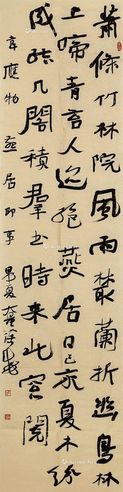 蕭條竹林院風雨叢蘭折幽鳥林
上啼青苔人迹絕燕居日已永夏木紛
成結几閣積羣書時來北窗閱
韋應物燕居即事